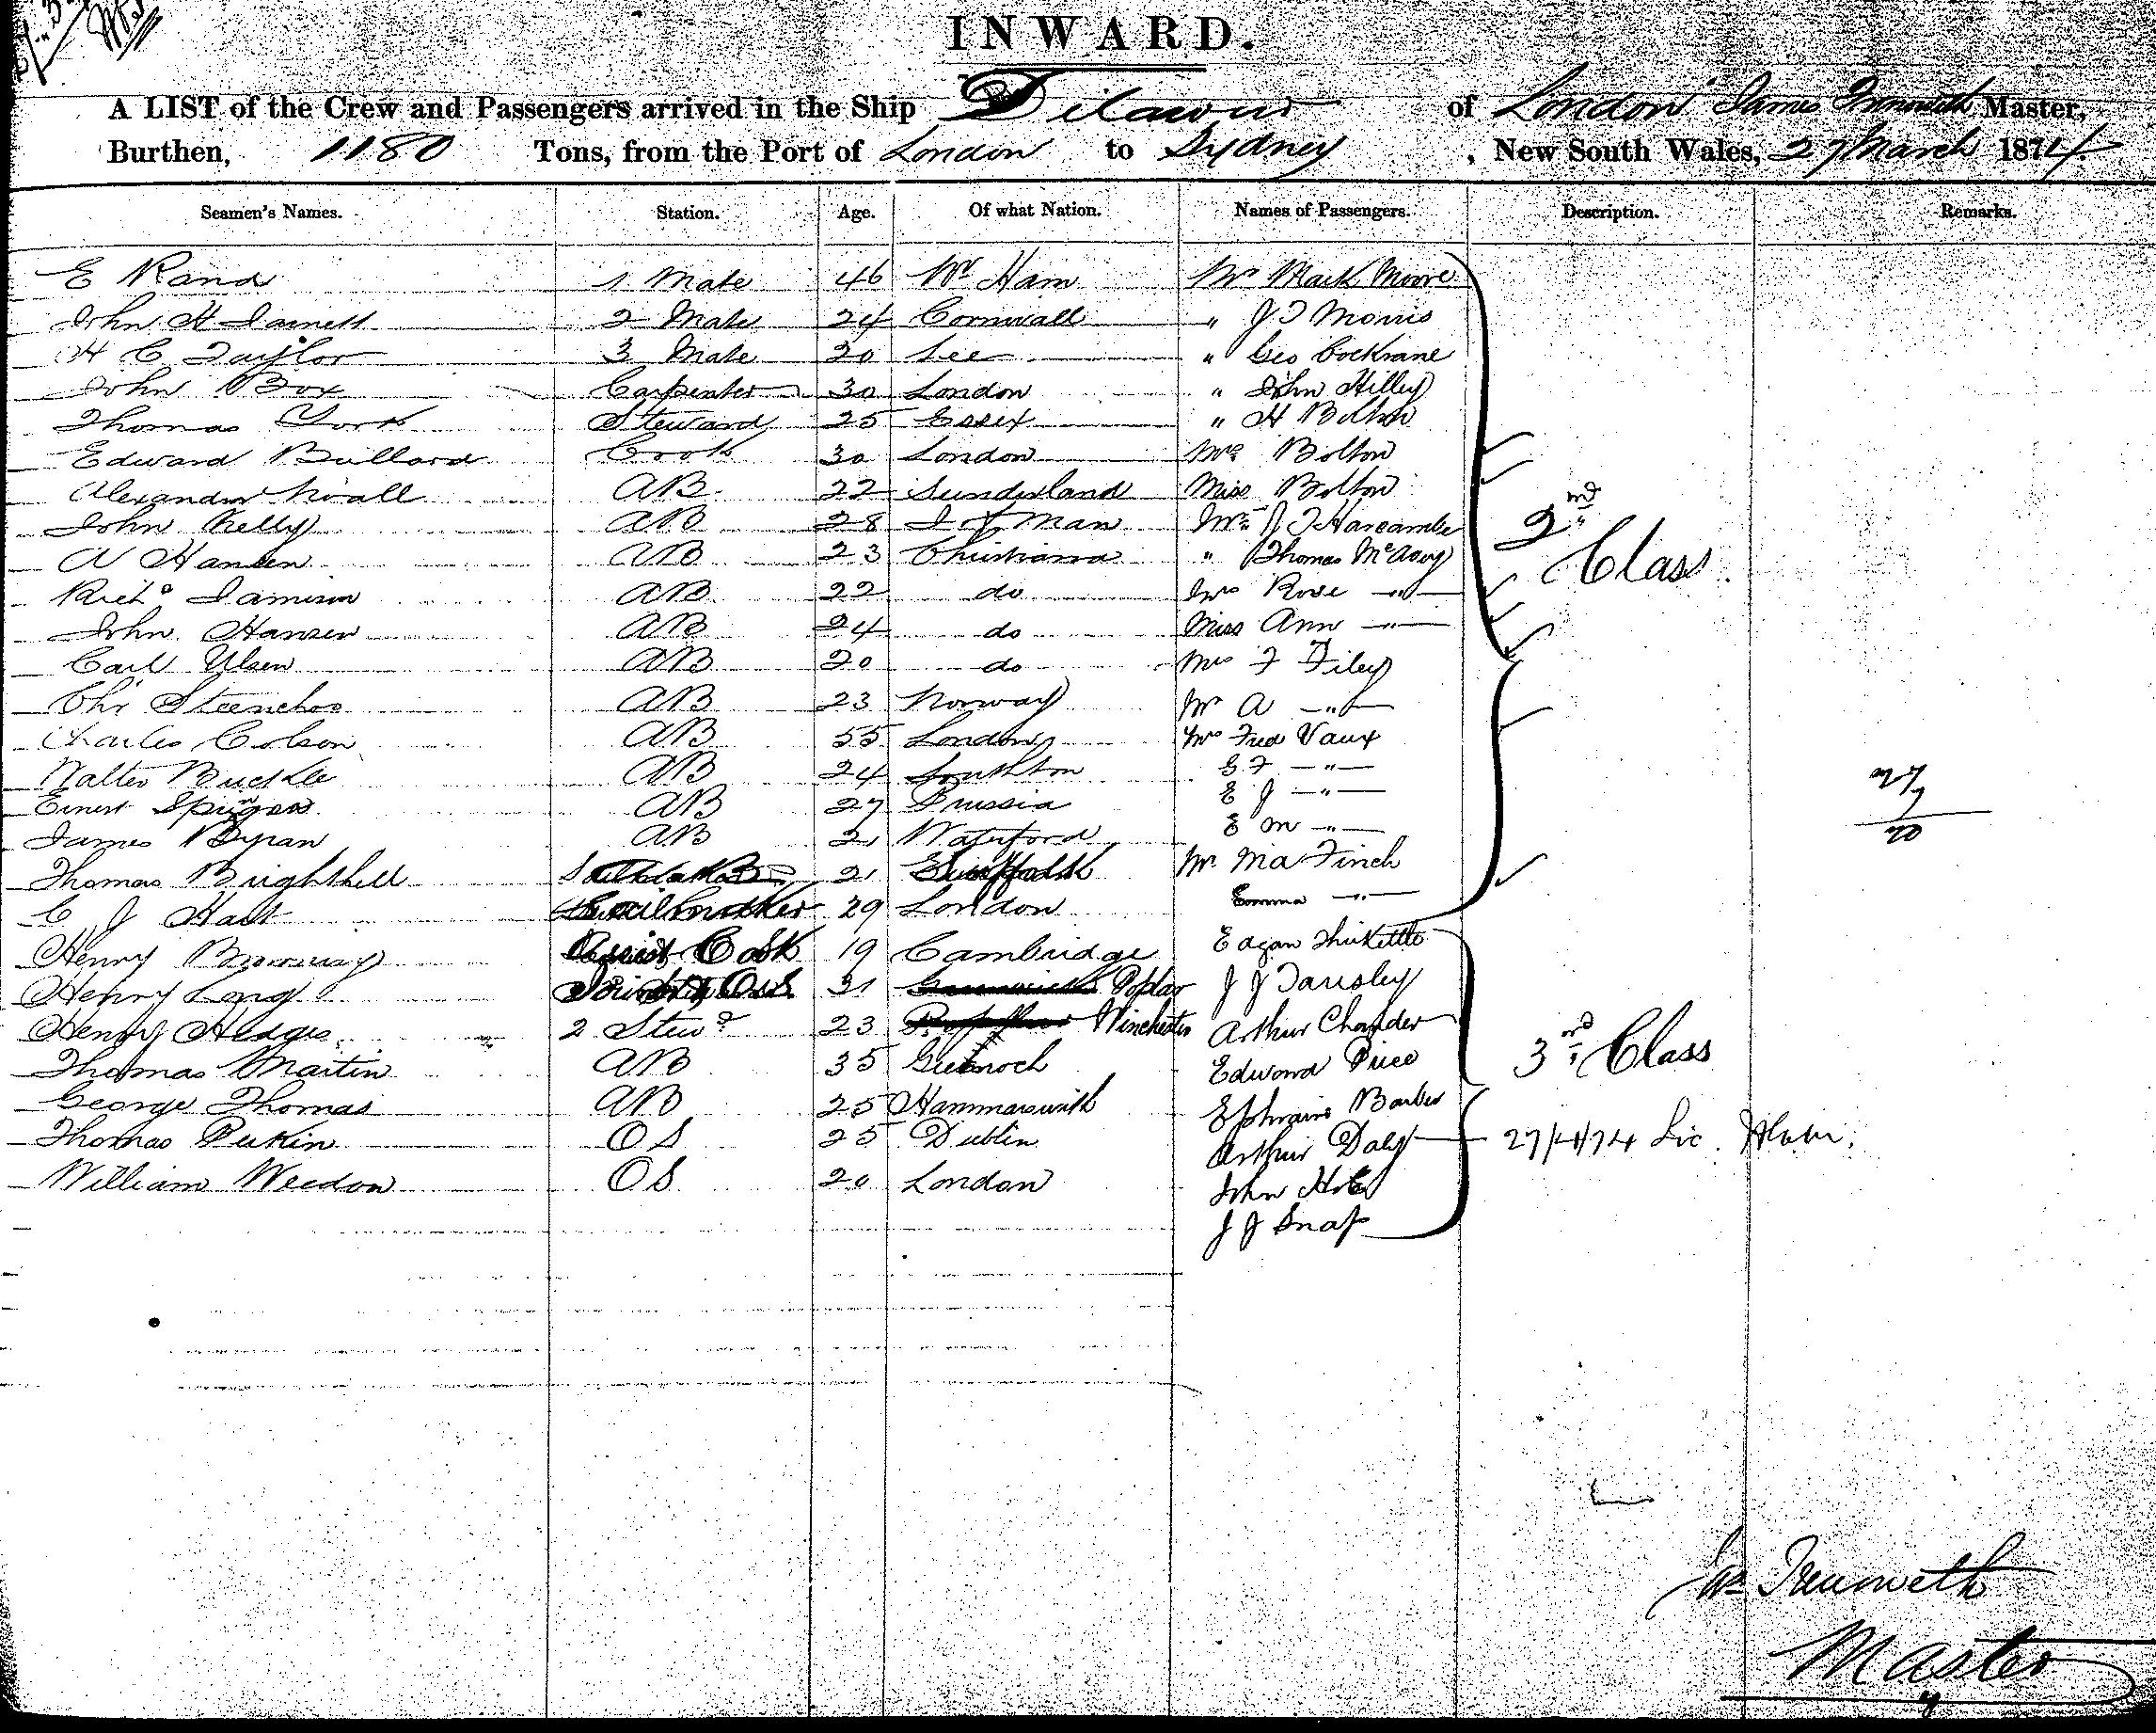 INWARD.
A LIST of the Crew and Passengers arrived in the Ship of London James Master,
Burthen, 1180 Tons, from the Port of London to Sydney, New South Wales, 27 March 1874.
Seamen's Names. Station. Age. Of what Nation. Names of Passengers. Description. Remarks.
E Rand 1 Mate 46 Wt Ham Mr Mark Moore
John H 2 Mate 24 Cornwall " J T Morris
H C Taylor 3 Mate 20 Lee " Geo Cockrane
John Box Carpenter 30 London " John Hilley
Thomas York Steward 25 Essex " H Bolton
Edward Bullard Cook 30 London Mrs Bolton
Alexander AB 22 Sunderland Miss Bolton
John Kelly AB 28 I of Man Mr J T Harcombe
A Hansen AB 23 Christiania " Thomas McAvoy
Richd AB 22 do Mrs Rose — " —
John Hansen AB 24 do Miss Ann — " —
Carl Ulsen AB 20 do Mrs F Filey
2nd Class.
Chr AB 23 Norway Mr A — " —
Charles Colson AB 55 London Mrs Fred Vaux
Walter Buckle AB 24 Southton E F — " —
Ernest AB 27 Prussia E J — " —
James Byran AB 21 Waterford E M — " —
27
20
Thomas Brighthell 21 Suffolk Mr Finch
C J Hart Sailmaker 29 London Emma — " —
Henry Cook 19 Cambridge Thirkettle
Henry Long OS 31 Poplar J J Tansley
Henry Hedges 2 Stewd 23 Winchester Arthur
Thomas Martin AB 35 Greenoch Edward Price
3rd Class
George Thomas AB 25 Hammersmith Ephraim Barber
Thomas OS 25 Dublin Arthur Daly 27/4/74
William Weedon OS 20 London John
J J Snap
Jas Trenweth
Master